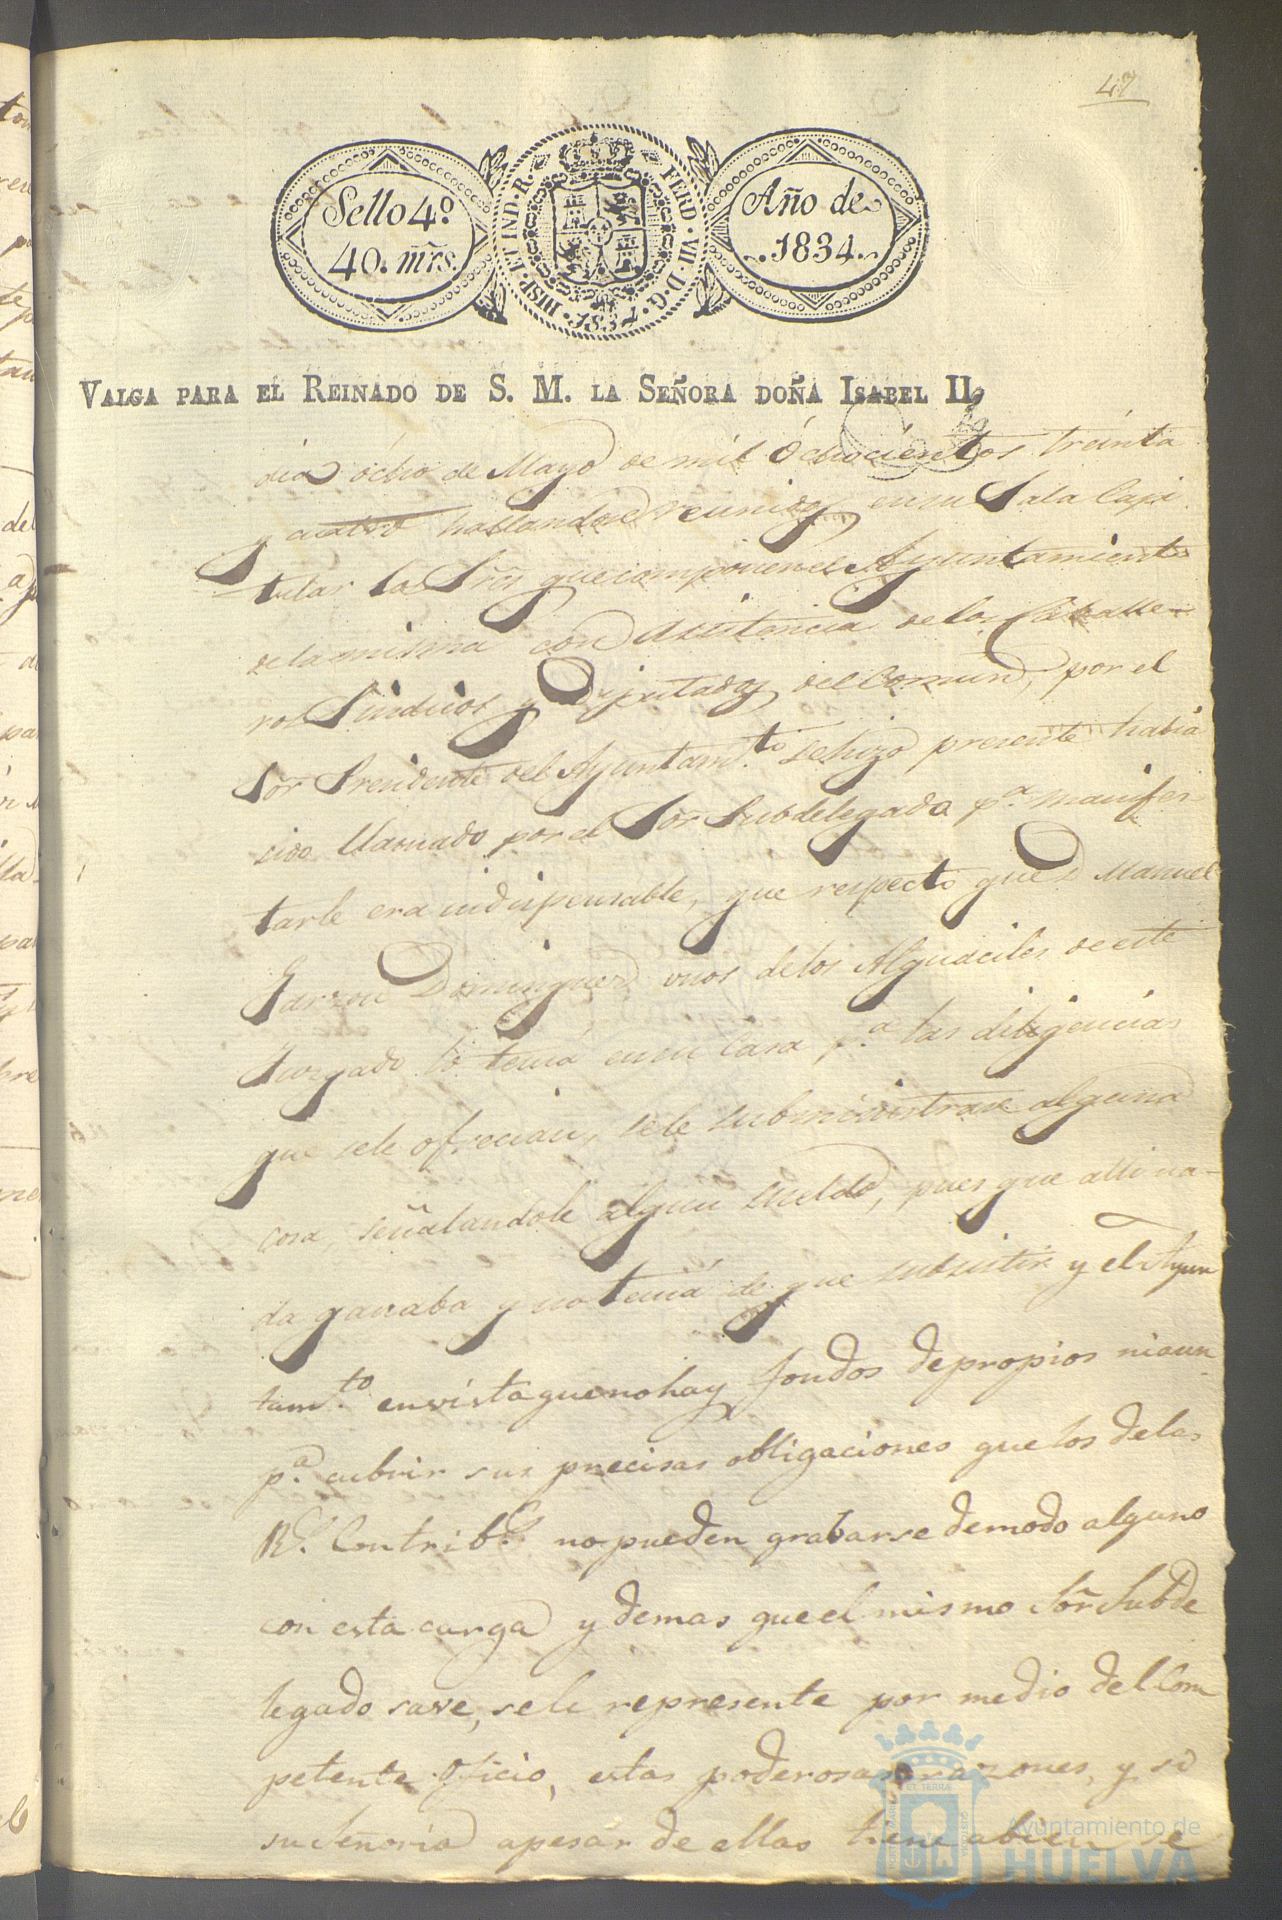 47
Sello 4º
40. mrs.
HISP. ET IND. R. FERD. VII. D. G. 1834
Año de
1834.
VALGA PARA EL REINADO DE S. M. LA SEÑORA DOÑA ISABEL II,
dia ocho de Mayo de mil ochocientos treinta
y cuatro hallandose reunidos en su Sala Capi
tular los Sres que componen el Ayuntamiento
de la misma con asistencia de los Caballe-
ros Sindicos y Diputados del Comun, por el
Sor Presidente del Ayuntam.to se hizo presente habia
sido llamado por el Sor Subdelegado p.a manifes
tarle era indispensable, que respecto que D Manuel
Garzon Dominguez unos de los Alguaciles de este
Juzgado lo tenia en su Casa p.a las diligencias
que sele ofrecian, sele subministrase alguna
cosa, señalandole algun sueldo, pues que alli na-
da ganaba y no tenia de que subsistir y el Ayun
tam.to en vista que no hay fondos de propios ni aun
p.a cubrir sus precisas obligaciones que los de las
R.s Contrib.s no pueden grabarse de modo alguno
con esta carga y demas que el mismo Sor Subde
legado save, sele represente por medio del Com
petente oficio, estas poderosas razones, y si
su Señoria apesar de ellas tiene abien se
Ayuntamiento de
HUELVA